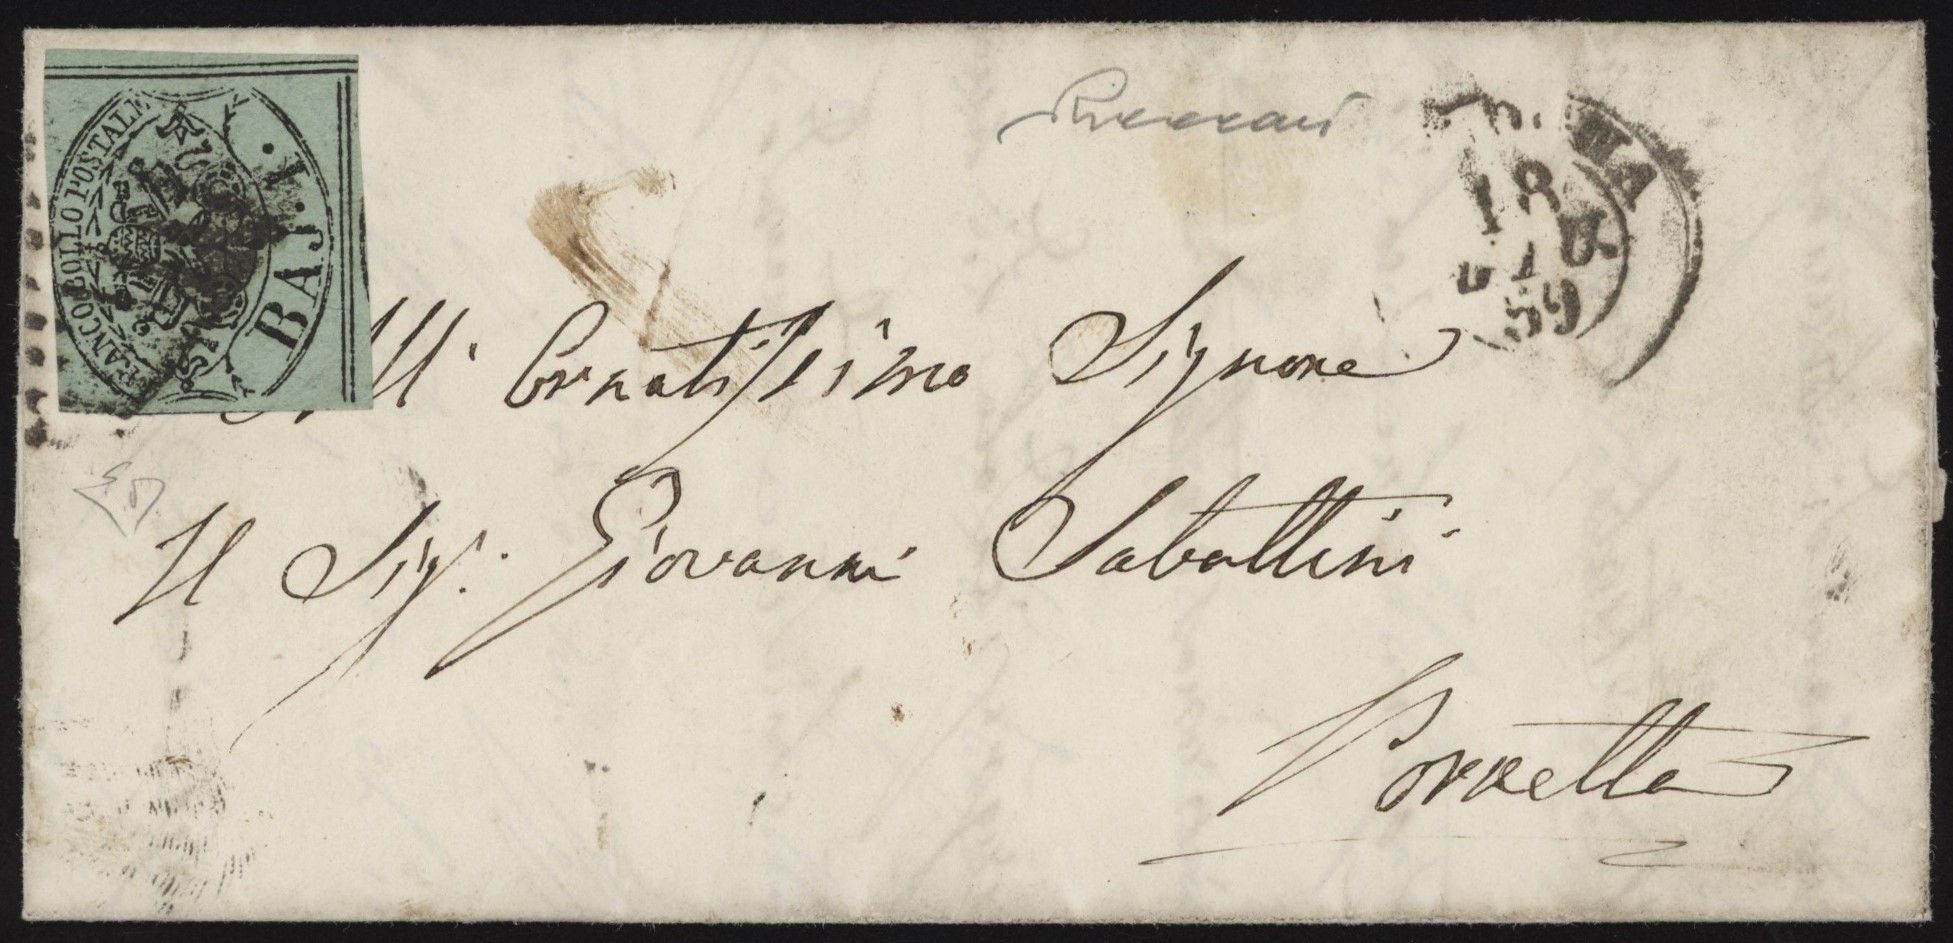 FRANCO BOLLO POSTALE
BAJ. 1.
18
GIU
59
All' Ornatissimo Signore
Il Sig.r Giovanni Sabattini
Porretta